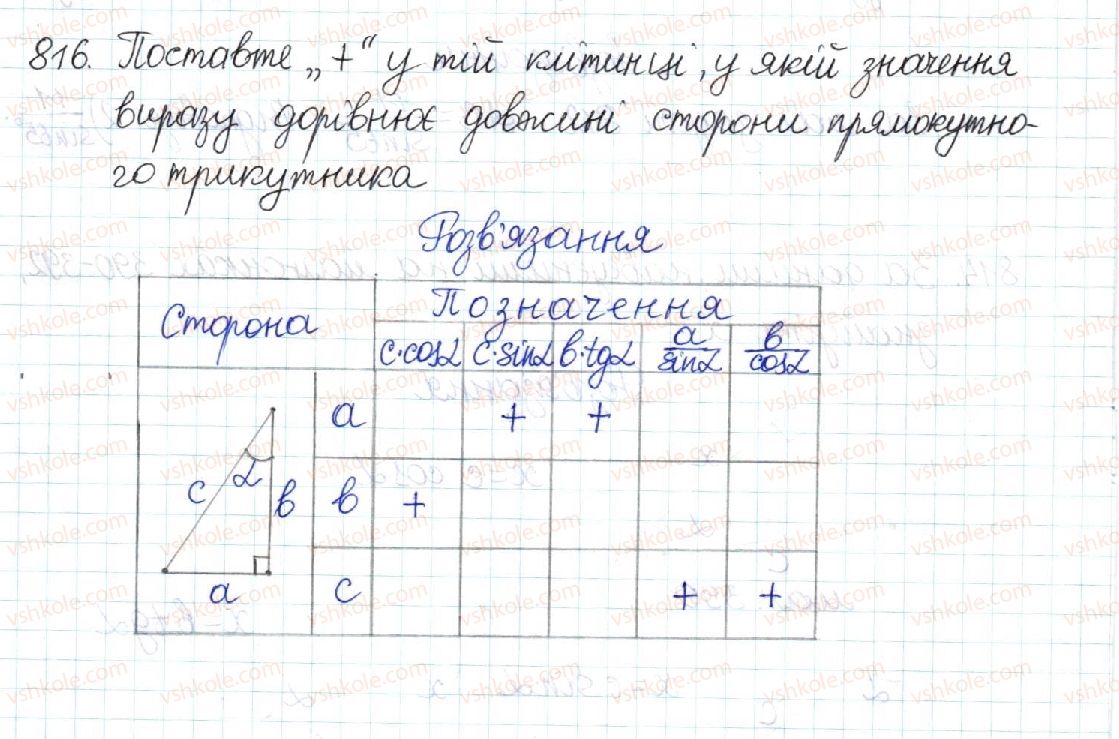 816. Поставте „+“ у тій клітинці, у якій значення
виразу дорівнює довжині сторони прямокутно-
го трикутника
Розв'язання
Сторона Позначення
c·cosα c·sinα b·tgα a/sinα b/cosα
a + +
b +
c + +
c α b
a
vshkole.com